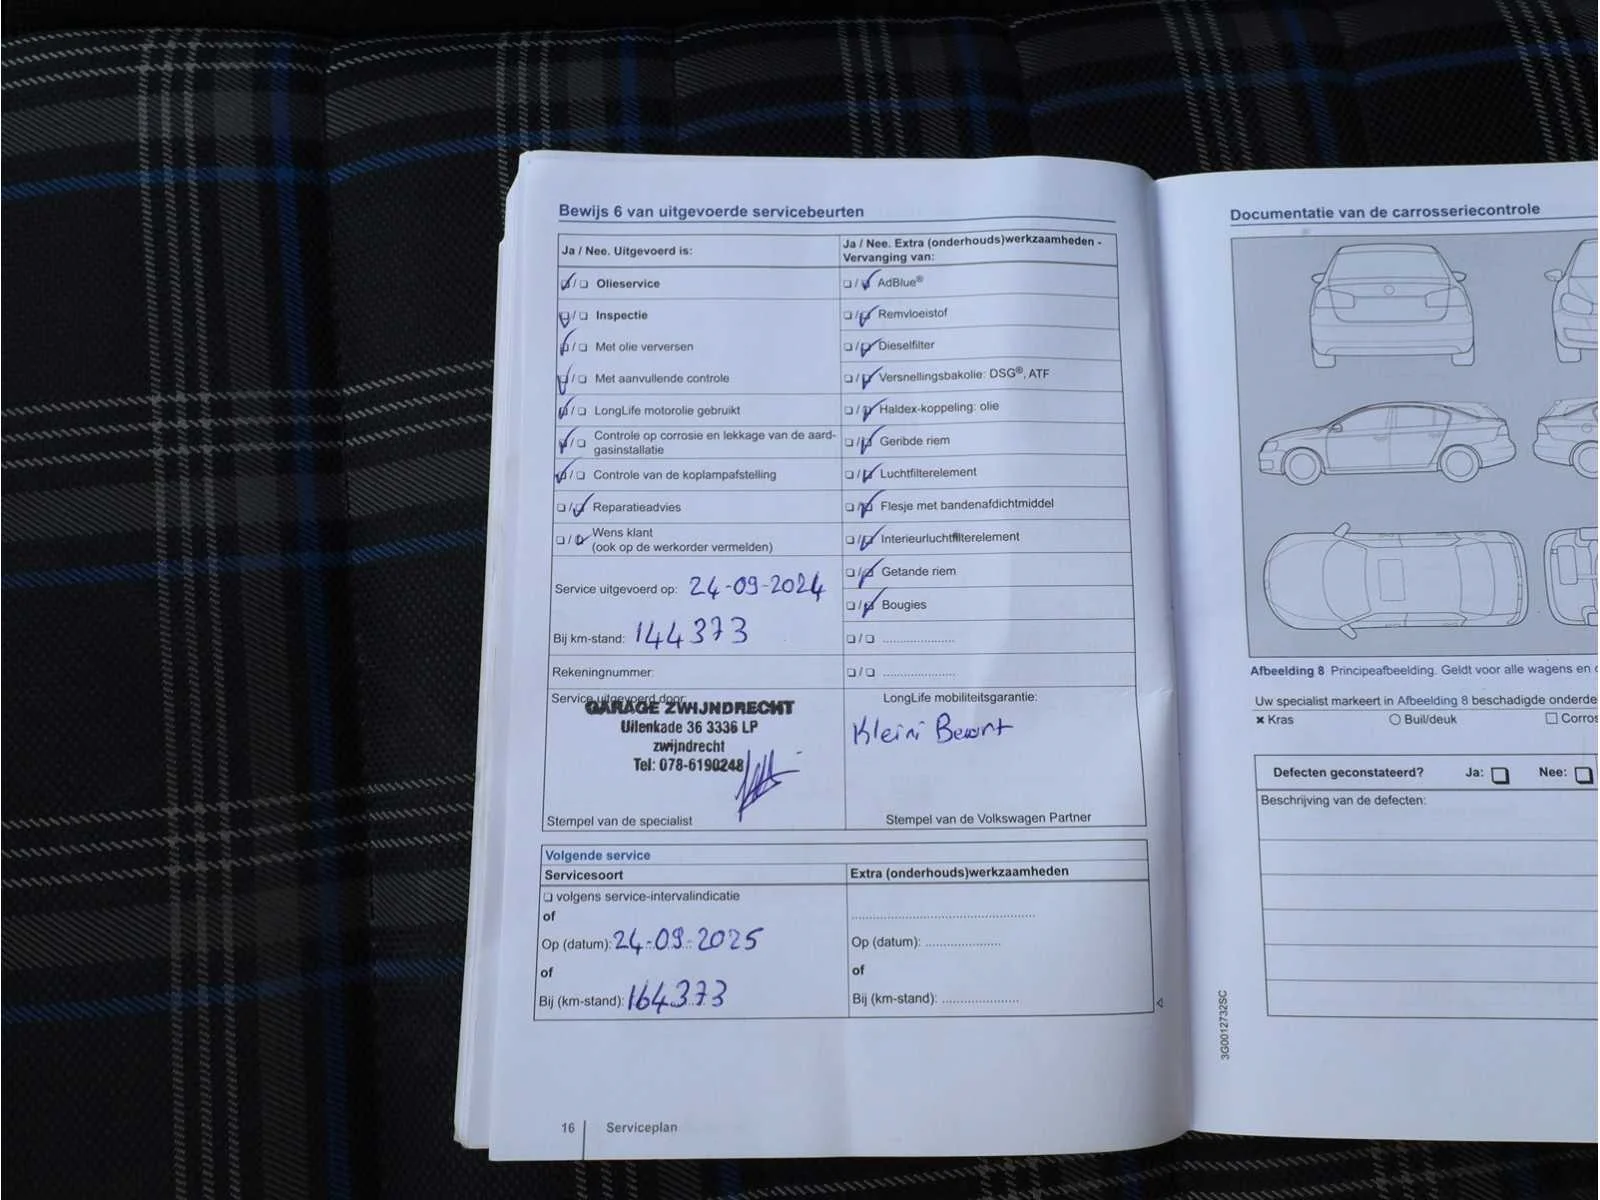 Bewijs 6 van uitgevoerde servicebeurten
Ja / Nee. Uitgevoerd is:
Ja / Nee. Extra (onderhouds)werkzaamheden -
Vervanging van:
Olieservice
AdBlue®
Inspectie
Remvloeistof
Met olie verversen
Dieselfilter
Met aanvullende controle
Versnellingsbakolie: DSG®, ATF
LongLife motorolie gebruikt
Haldex-koppeling: olie
Controle op corrosie en lekkage van de aard-
gasinstallatie
Geribde riem
Controle van de koplampafstelling
Luchtfilterelement
Reparatieadvies
Flesje met bandenafdichtmiddel
Wens klant
(ook op de werkorder vermelden)
Interieurluchtfilterelement
Getande riem
Service uitgevoerd op: 24-09-2024
Bougies
Bij km-stand: 144373
Rekeningnummer:
Service uitgevoerd door:
GARAGE ZWIJNDRECHT
Uilenkade 36 3336 LP
zwijndrecht
Tel: 078-6190248
Stempel van de specialist
LongLife mobiliteitsgarantie:
Klein Beurt
Stempel van de Volkswagen Partner
Volgende service
Servicesoort
Extra (onderhouds)werkzaamheden
volgens service-intervalindicatie
of
Op (datum): 24-09-2025
Op (datum):
of
of
Bij (km-stand): 164373
Bij (km-stand):
16 Serviceplan
Documentatie van de carrosseriecontrole
Afbeelding 8 Principeafbeelding. Geldt voor alle wagens en
Uw specialist markeert in Afbeelding 8 beschadigde onderde
Kras
Buil/deuk
Corros
Defecten geconstateerd? Ja: Nee:
Beschrijving van de defecten:
3G0012732SC